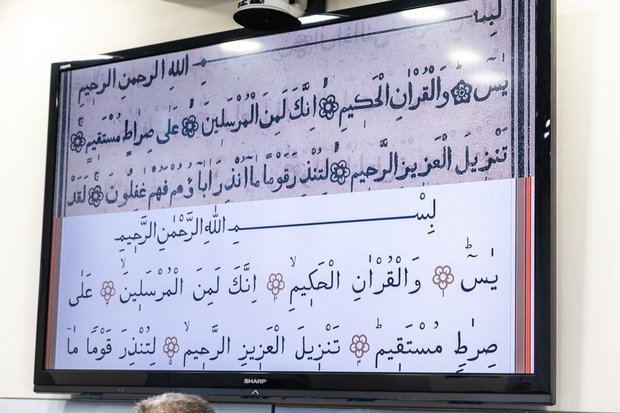 بِسْــــمِ اللّٰهِ الرَّحْمٰنِ الرَّحٖيمِ
يٰسٓ ۞ وَالْقُرْاٰنِ الْحَكٖيمِۙ ۞ اِنَّكَ لَمِنَ الْمُرْسَلٖينَۙ ۞ عَلٰى صِرَاطٍ مُسْتَقٖيمٍؕ ۞
تَنْزٖيلَ الْعَزٖيزِ الرَّحٖيمِۙ ۞ لِتُنْذِرَ قَوْمًا مَٓا اُنْذِرَ اٰبَٓاؤُ۬هُمْ فَهُمْ غَافِلُونَ ۞ لَقَدْ
بِسْــــمِ اللّٰهِ الرَّحْمٰنِ الرَّحٖيمِ
يٰسٓ ۞ وَالْقُرْاٰنِ الْحَكٖيمِۙ ۞ اِنَّكَ لَمِنَ الْمُرْسَلٖينَۙ ۞ عَلٰى
صِرَاطٍ مُسْتَقٖيمٍؕ ۞ تَنْزٖيلَ الْعَزٖيزِ الرَّحٖيمِۙ ۞ لِتُنْذِرَ قَوْمًا مَٓا
SHARP